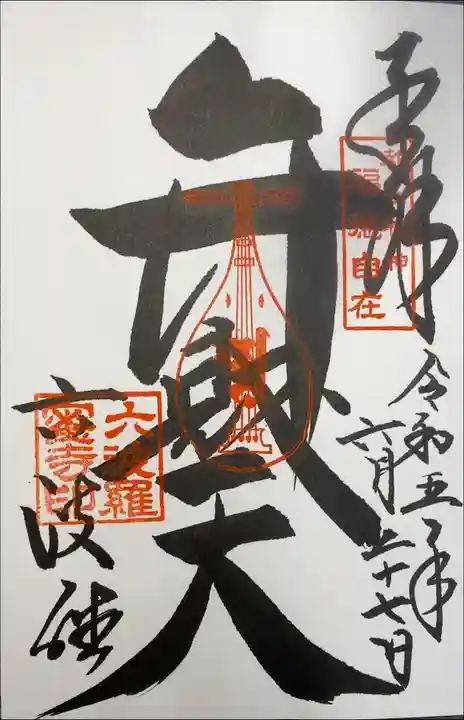 奉拝
自在
令和五年
六月二十七日
弁財天
六波羅
六波羅
蜜寺印